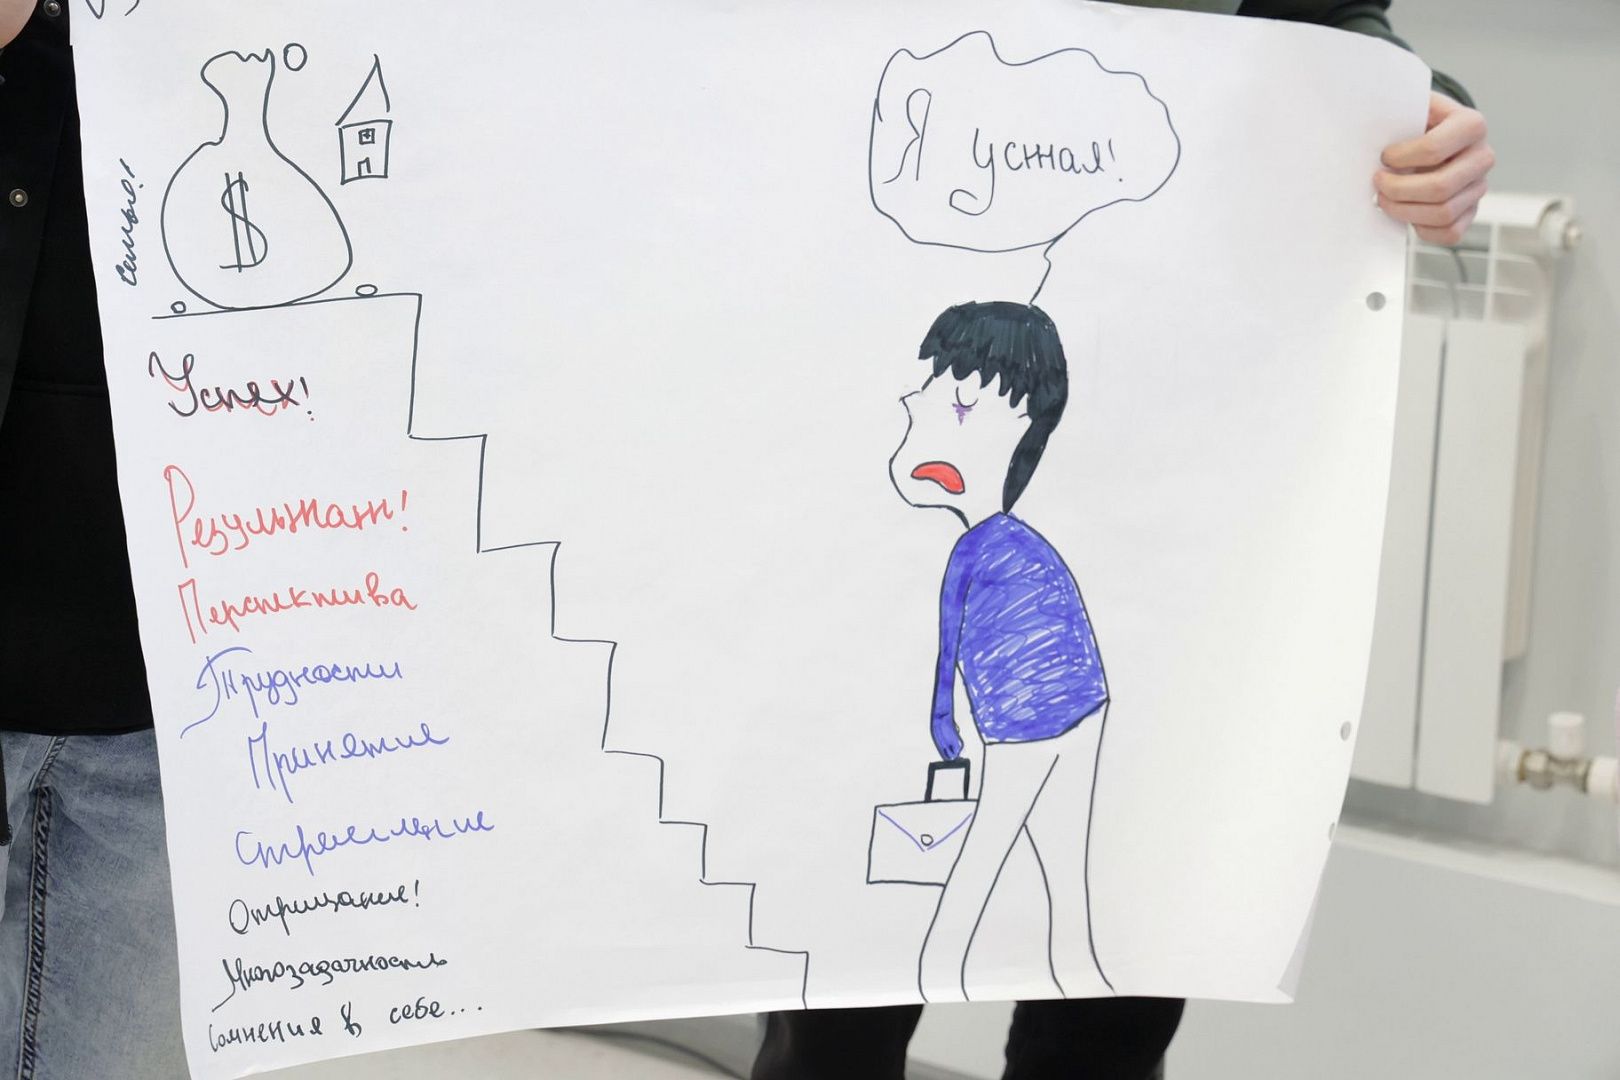 Я устал!
$
семья!
Успех!
Результат!
Перспектива
Трудности
Принятие
Стремление
Отрицание!
Многозадачность
Сомнения в себе...